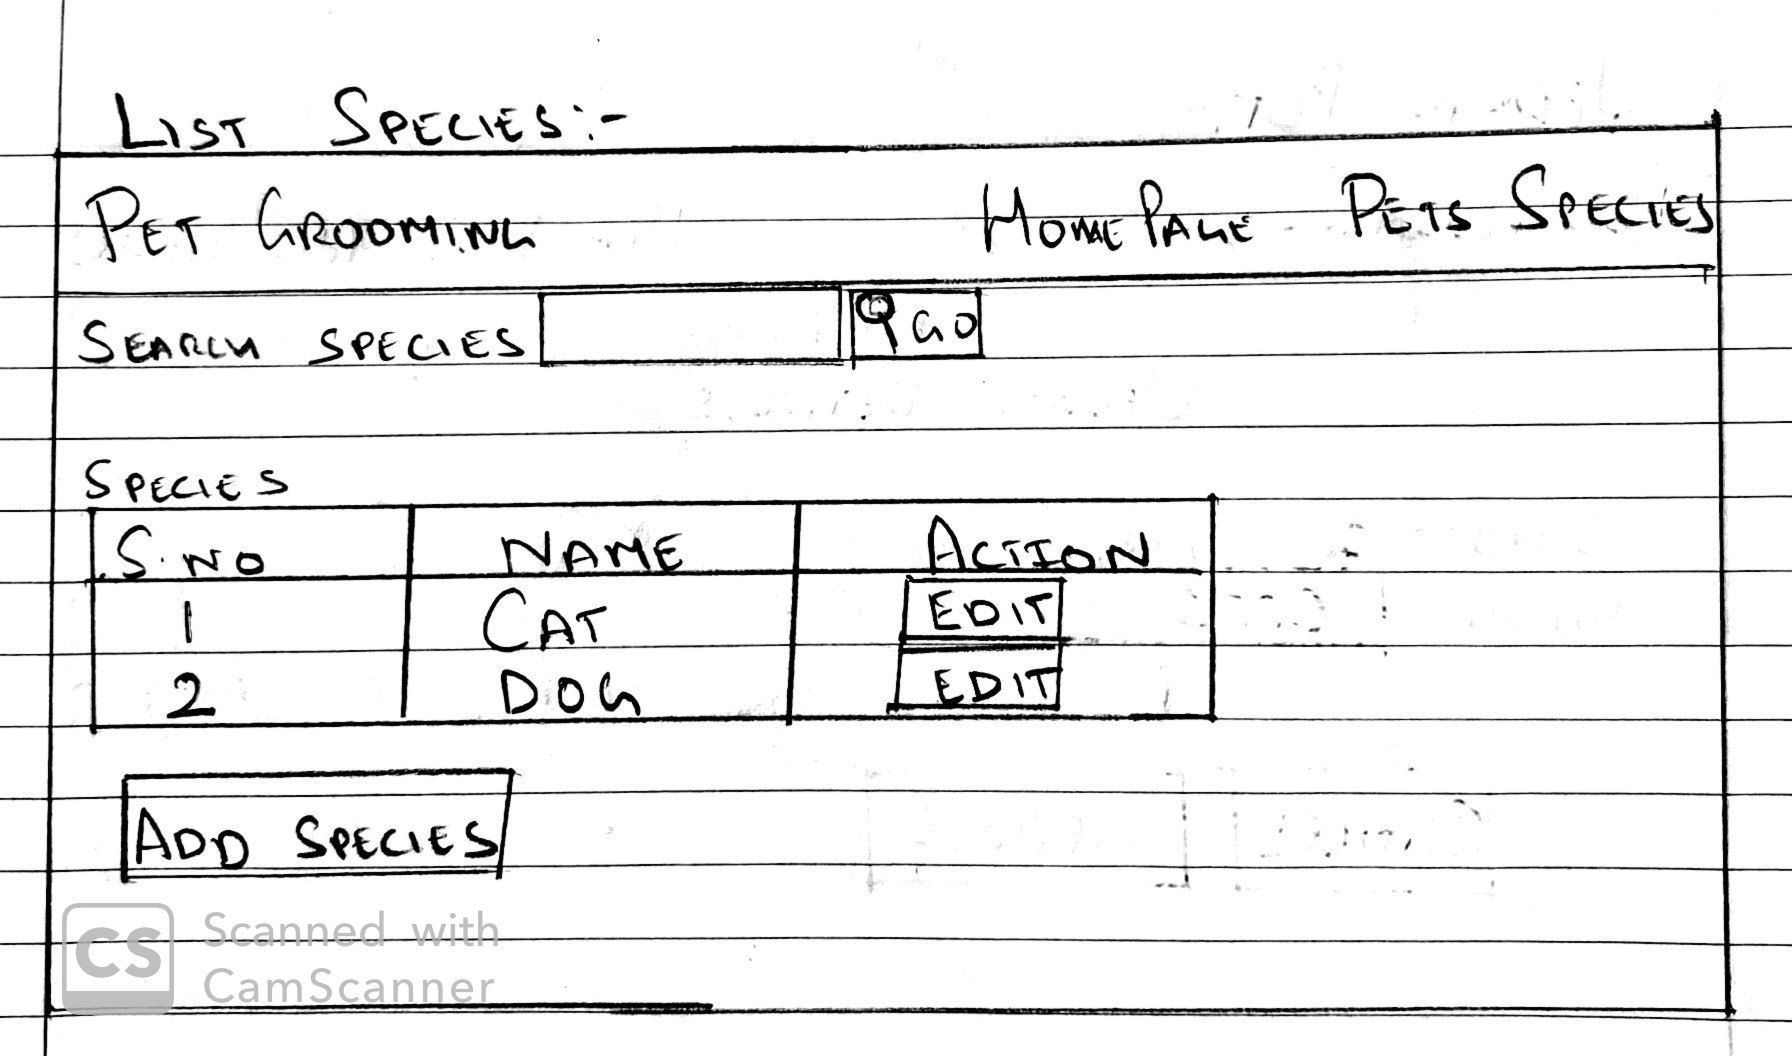 LIST SPECIES:-
PET GROOMING HOMEPAGE PETS SPECIES
SEARCH SPECIES GO
SPECIES
S.NO NAME ACTION
1 CAT EDIT
2 DOG EDIT
ADD SPECIES
CS Scanned with
CamScanner